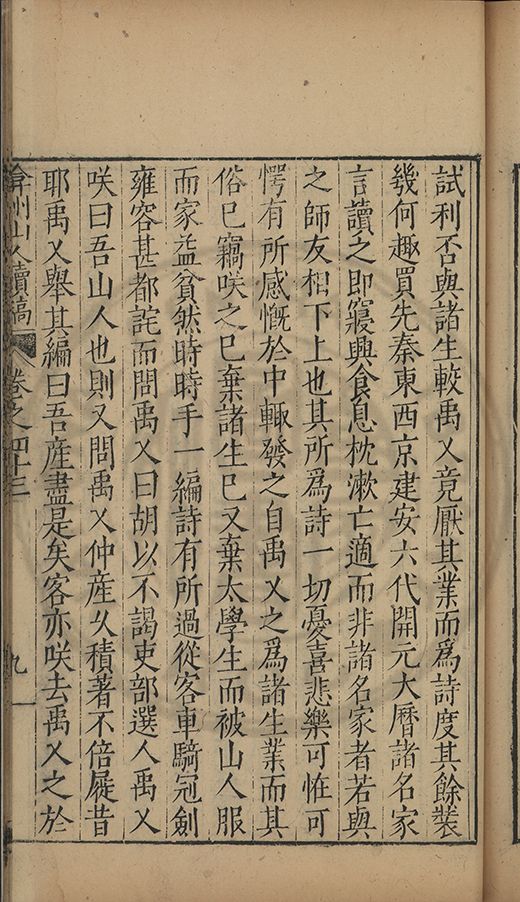 試利否與諸生較禹乂竟厭其業而爲詩度其餘裝
幾何趣買先秦東西京建安六代開元大曆諸名家
言讀之即寢興食息枕漱亡適而非諸名家者若與
之師友相下上也其所爲詩一切憂喜悲樂可恠可
愕有所感慨於中輙發之自禹乂之爲諸生業而其
俗巳竊咲之巳棄諸生巳又棄太學生而被山人服
而家益貧然時時手一編詩有所過從客車騎冠劍
雍容甚都詫而問禹乂曰胡以不謁吏部選人禹乂
咲曰吾山人也則又問禹乂仲産乆積著不倍屣昔
耶禹乂舉其編曰吾産盡是矣客亦咲去禹乂之於
弇州山人續稿 卷之四十三 九